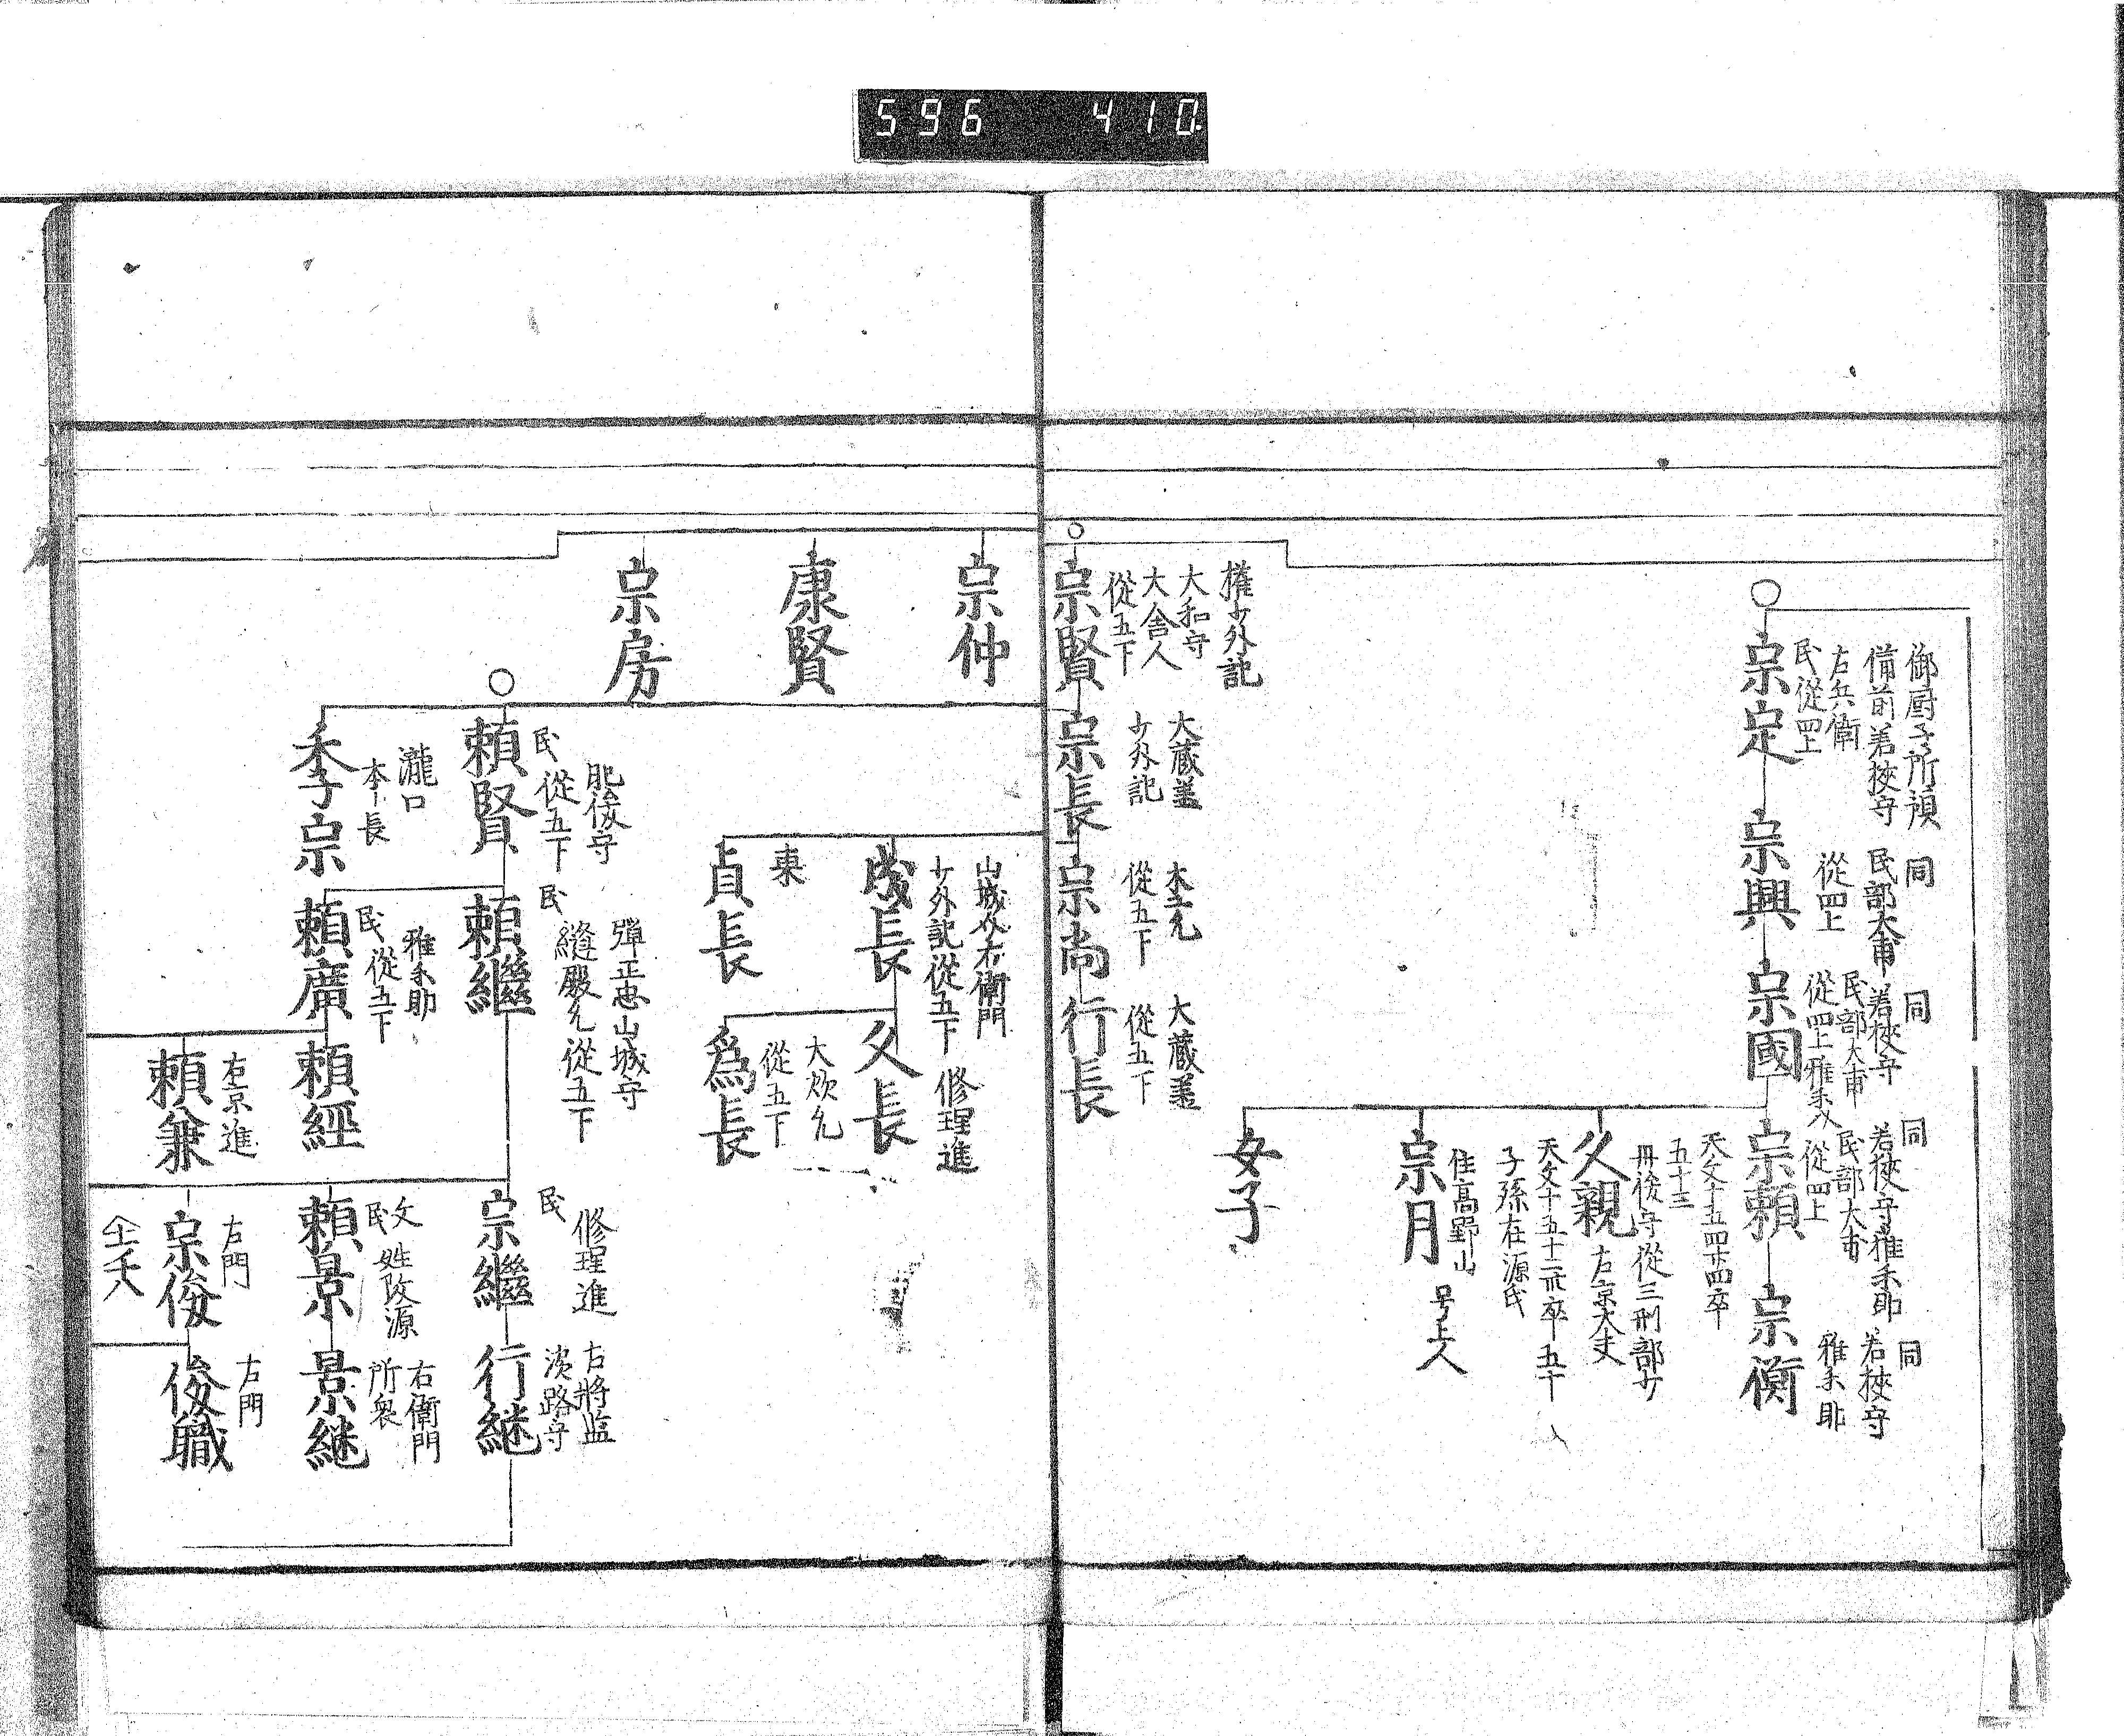 596 410
御厨子所預
備前若狹守
右兵衛
民從四上
宗定
同
民部大甫
從四上
宗興
同
若狹守
民部大甫
從四上雅樂
宗國
同
若狹守雅樂助
民部大甫
從四上
宗頼
天文十五四廿四卒
五十三
同
若狹守
雅樂助
宗衡
久親
丹後守從三刑部少
右京大丈
天文十五十二卒五十
子孫在源氏
宗月
住高野山
号上人
女子
權少外記
大和守
大舍人
從五下
宗賢
大蔵
少外記
宗長
木工允
從五下
宗尚
大蔵
從五下
行長
宗仲
康賢
宗房
山城
左衛門
少外記從五下
成長
東
貞長
修理進
久長
大炊允
從五下
為長
肥後守
民從五下
頼賢
瀧口
本長
季宗
彈正忠山城守
民縫殿允從五下
頼繼
雅樂助
民從五下
頼廣
頼經
右京進
頼兼
修理進
民
宗繼
文
民姓改源
頼景
右門
宗俊
右將監
淡路守
行継
右衛門
所衆
景継
右門
俊職